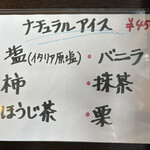 ナチュラルアイス ¥45
塩(イタリア原塩)・バニラ
柿 ・抹茶
ほうじ茶 ・栗